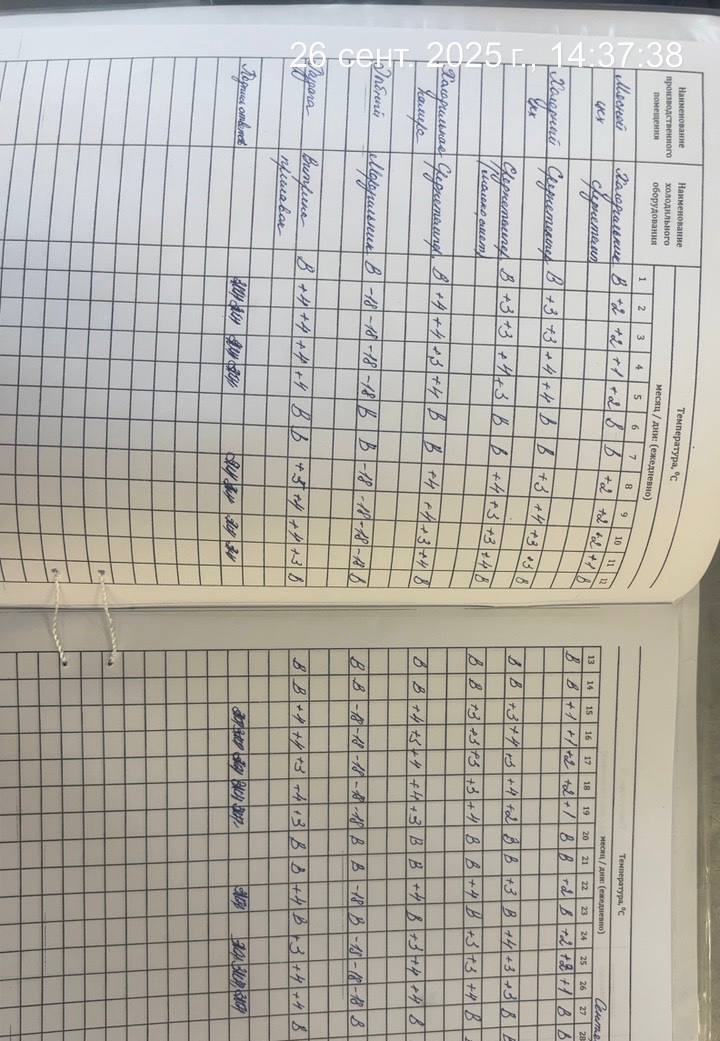 26 сент. 2025 г., 14:37:38
Наименование производственного помещения
Наименование холодильного оборудования
Температура, °С
месяц / дни: (ежедневно)
1 2 3 4 5 6 7 8 9 10 11 12
Мясной Холодильник В +2 +2 +1 +2 В В +2 +2 +2 +1 В
цех среднетемп
Холодный Среднетемпер В +3 +3 +4 +4 В В +3 +4 +3 +3 В
цех
Среднетемпер В +3 +3 +4 +3 В В +4 +3 +3 +4 В
(молоко, смет)
Холодильная Среднетемпер. В +4 +4 +3 +4 В В +4 +4 +3 +4 В
камера
Морозильник В -18 -18 -18 -18 В В -18 -18 -18 -18 В
Раздача Витрина В +4 +4 +4 +4 В В +3 +4 +4 +3 В
прилавок
Подпись ответств
Температура, °С
месяц / дни: (ежедневно)
13 14 15 16 17 18 19 20 21 22 23 24 25 26 27 28
В В +1 +1 +2 +2 +1 В В +2 В +2 +2 +1 В В
В В +3 +4 +3 +4 +2 В В +3 В +4 +3 +3 В
В В +3 +3 +3 +3 +4 В В +4 В +3 +3 +4 В
В В +4 +3 +4 +4 +3 В В +4 В +3 +4 +4 В
В В -18 -18 -18 -18 -18 В В -18 В -18 -18 -18 В
В В +4 +4 +3 +4 +3 В В +4 В +3 +4 +4 В